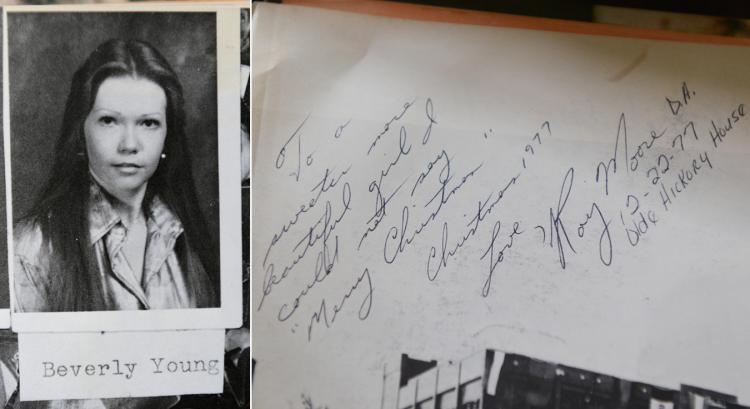 Beverly Young
To a
sweeter more
beautiful girl I
could not say
"Merry Christmas"
Christmas 1977
Love,
Roy Moore D.A.
12-22-77
Olde Hickory House